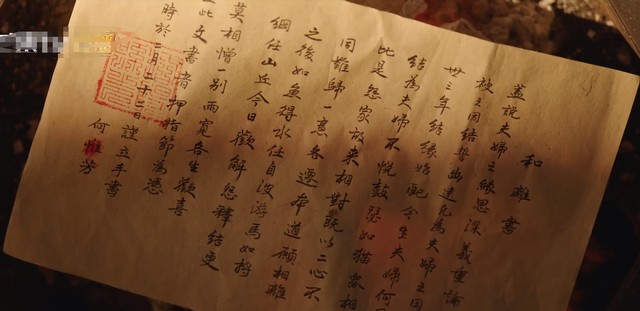 和離書
蓋說夫婦之緣恩深義重論
被之因結誓幽遠凡為夫婦之因
世三年結緣始配今生夫婦何
結為夫婦不悅鼓瑟如猫鼠相
比是怨家故來相對既以二心不
同難歸一意各還本道願相離
之後如魚得水任自波游馬如捋
綱任山丘今日歡解怨釋結更
莫相憎一別兩寬各生歡喜
此文書者押指節為憑
時於二月二十二日謹立手書
何惟芳